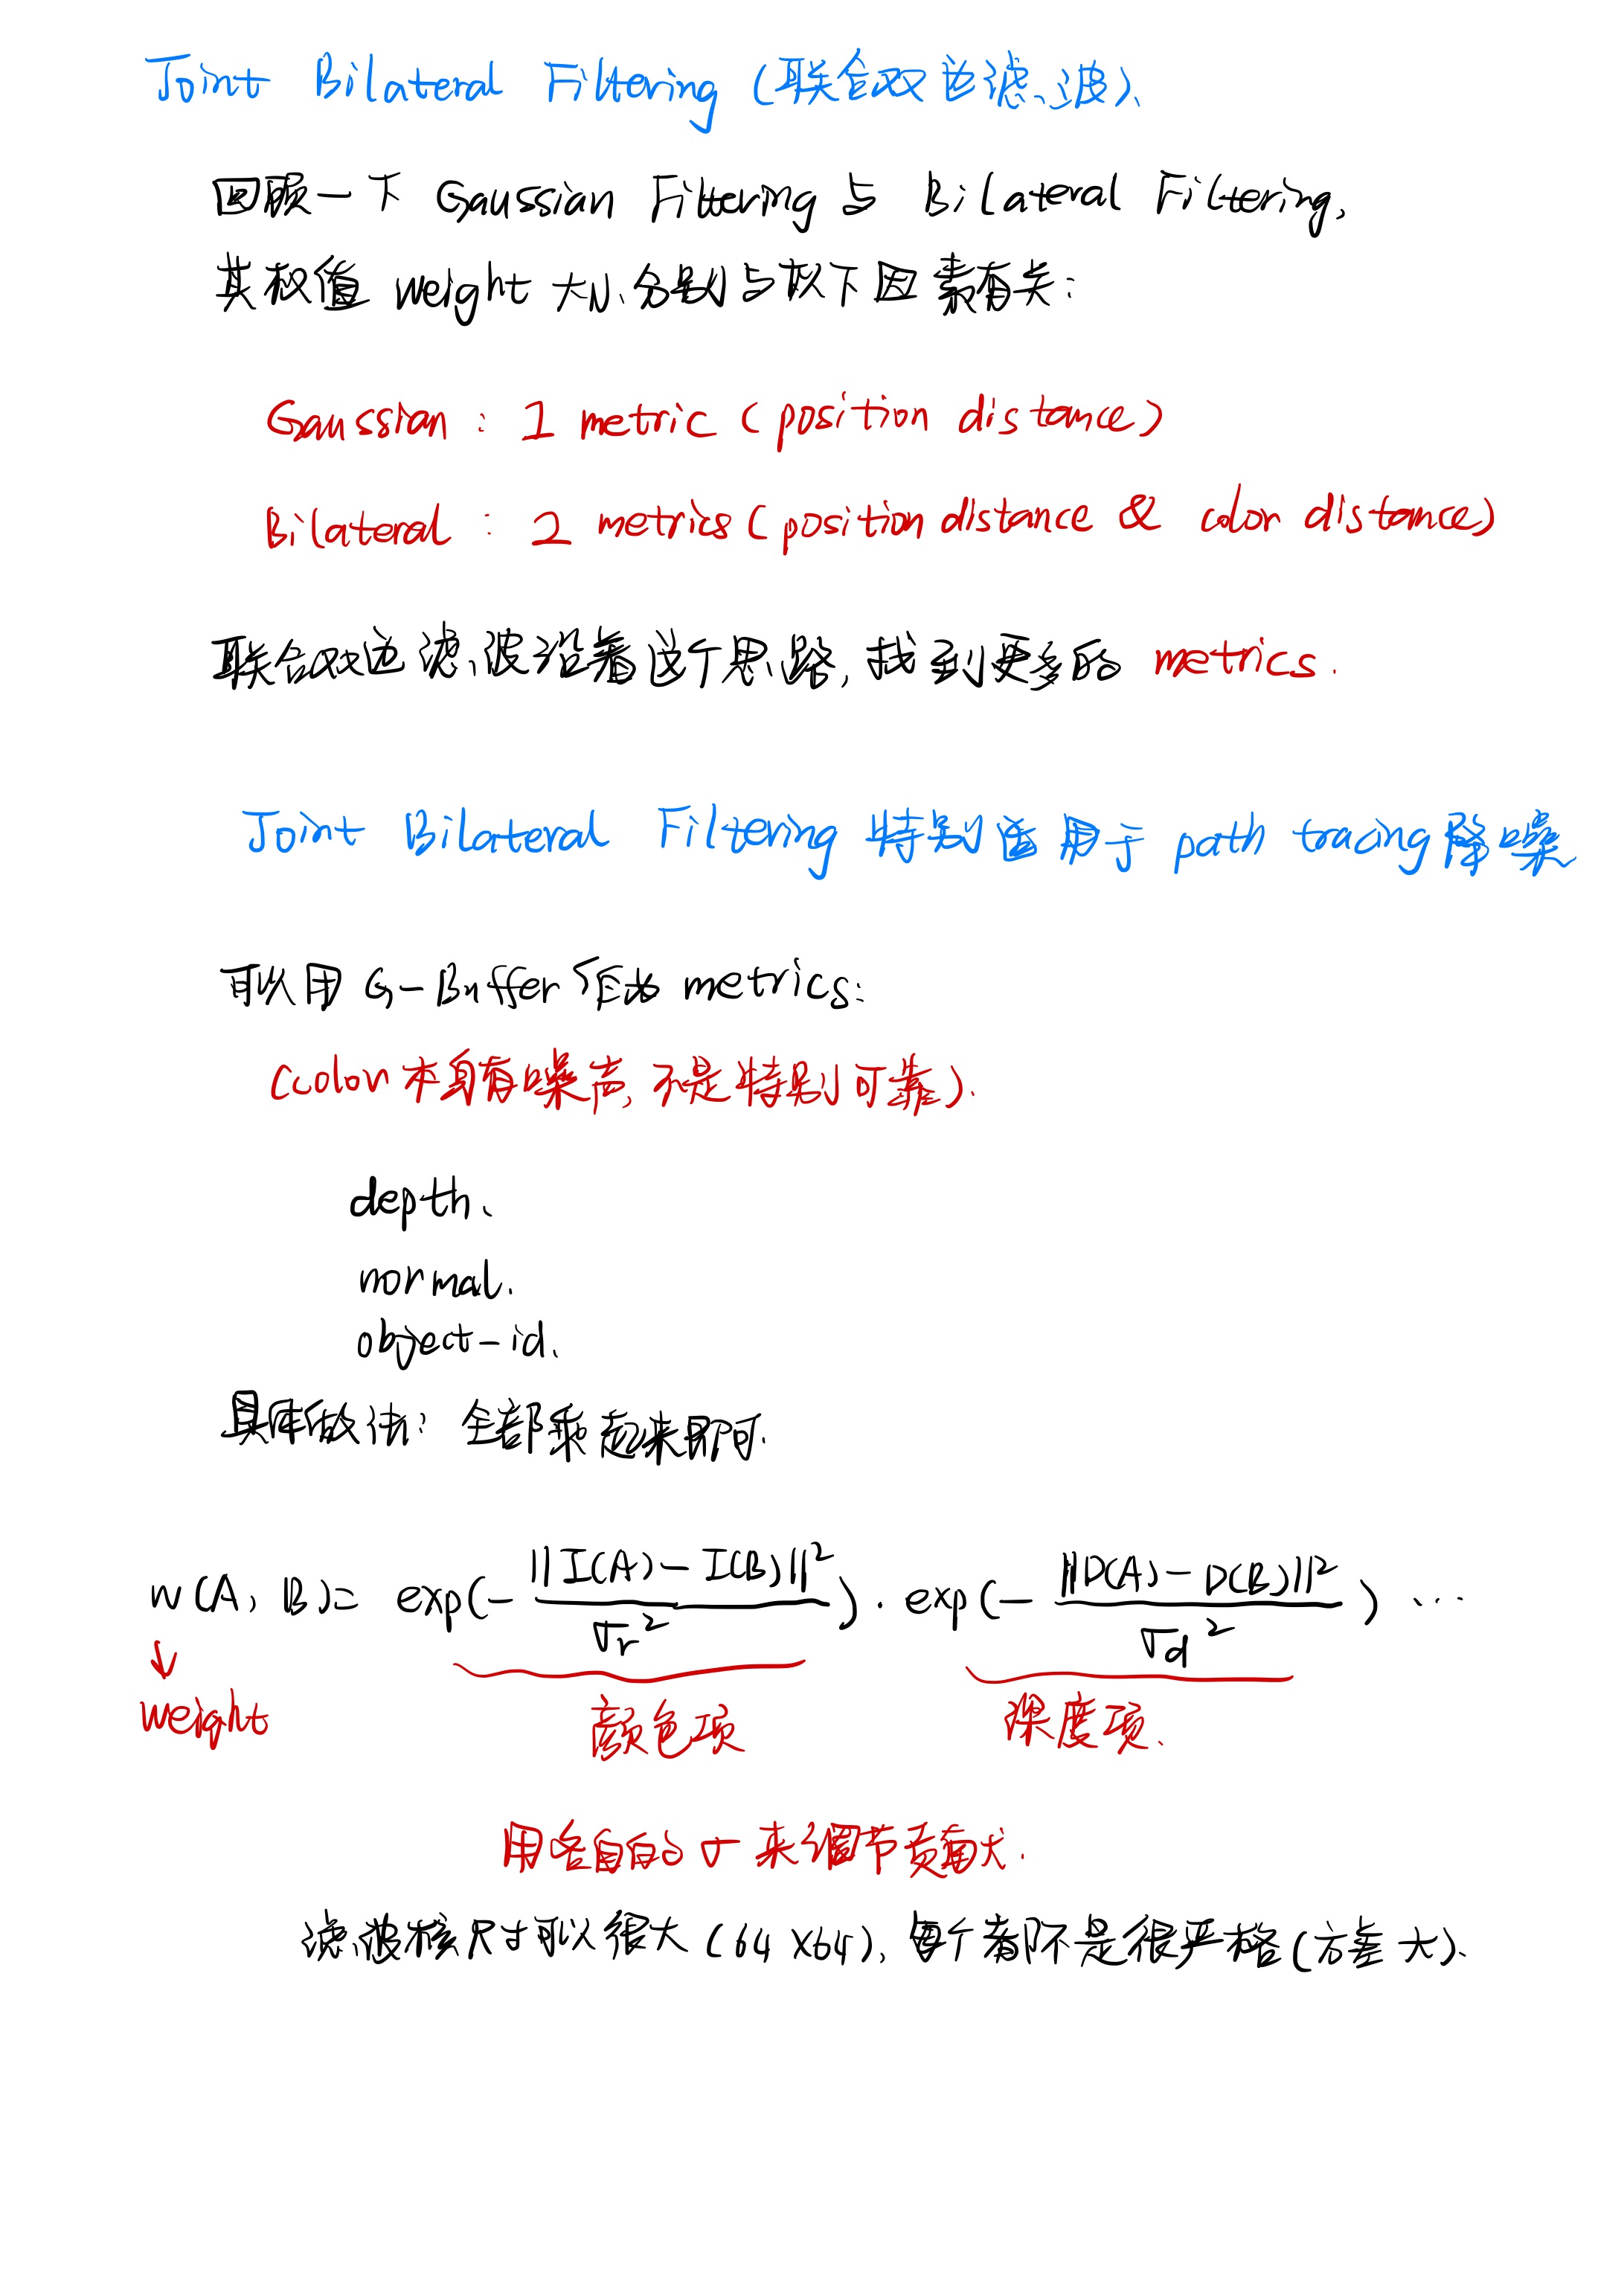 Joint Bilateral Filtering (联合双边滤波).
回顾一下 Gaussian Filtering 与 Bilateral Filtering,
其权值 weight 大小分别与以下因素有关:
Gaussian : 1 metric (position distance)
Bilateral : 2 metrics (position distance & color distance)
联合双边滤波沿着这个思路, 找到更多的 metrics.
Joint Bilateral Filtering 特别适用于 path tracing 降噪
可以用 G-Buffer 作为 metrics:
(color 本身有噪声, 不是特别可靠).
depth.
normal.
object-id.
具体做法: 全部乘起来即可.
w(A, B) = exp(- ||I(A) - I(B)||² / σr²) · exp(- ||D(A) - D(B)||² / σd²) ...
↓
weight 颜色项 深度项.
用各自的 σ 来调节贡献大.
滤波核尺寸可以很大 (64 X64), 每个都不是很严格 (方差大).